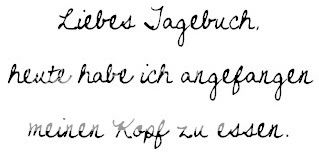 Liebes Tagebuch,
heute habe ich angefangen
meinen Kopf zu essen.